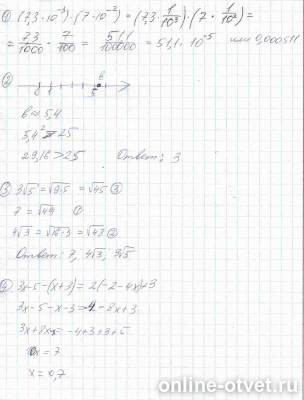 ① (7,3·10⁻³)·(7·10⁻²) = (7,3·1/10³)·(7·1/10²) =
= 7,3/1000 · 7/100 = 51,1/100000 = 51,1·10⁻⁵ или 0,000511
② в
5
в ≈ 5,4
5,4² > 25
29,16 > 25 Ответ: 3
③ 3√5 = √9·5 = √45 ③
7 = √49 ①
4√3 = √16·3 = √48 ②
Ответ: 7, 4√3, 3√5
④ 3x-5-(x+3) = 2(-2-4x)+3
3x-5-x-3=-4-8x+3
3x+8x = -4+3+3+5
10x = 7
x = 0,7
online-otvet.ru